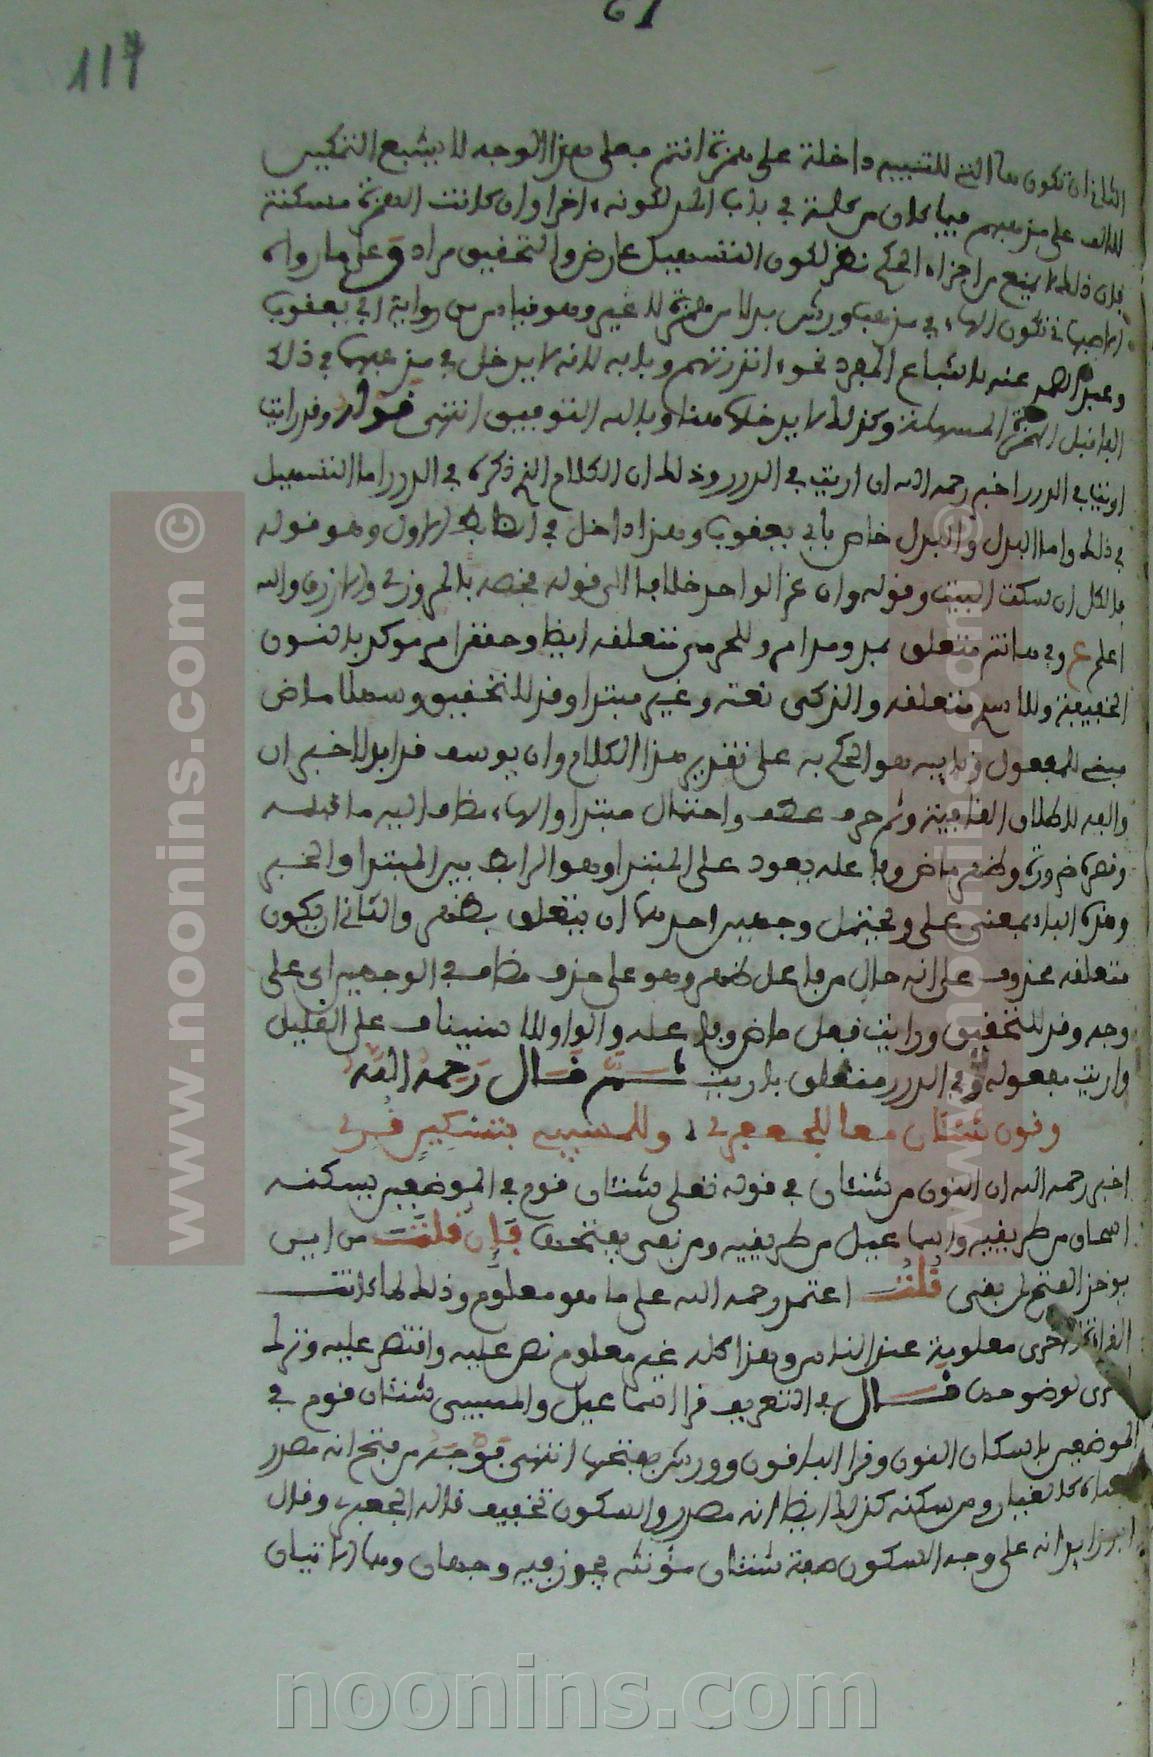 117
الثاني ان تكون ها التي للتنبيه داخلة على همزة انتم فعلى هذا الوجه لا يشبع التمكين
للالف على مذهبهم فيما كان من كلمة في باب المد لكونه اخرا وان كانت الهمزة مسكنة
فان ذلك لا يمنع من اجراء الحكم نظر لكون التسهيل عارض والتحقيق مراد وعلى ما رواه
تكون الهاء في مذهب ورش بدلا من همزة لا غير وهو قياس من رواية ابي يعقوب
وعبد الصمد عنه لاشباع المجرد نحو انذرتهم وبابه لانه لا يدخل في مذهبهما في ذلك
الفا قبل الهمزة المسهلة وكذلك لا يدخلها هنا وبالله التوفيق انتهى قوله وقد رايت
اريت في الدرر اخبر رحمه الله ان اريت في الدرر وذلك ان الكلام الذي ذكره في الدرر اما التسهيل
في ذلك واما البدل والبدل خاص بابي يعقوب وهذا داخل في الضابط الاول وهو قوله
بالكل ان سكت البيت وقوله وان عز الواحد خلافا الى قوله مخصصه بالمروزي والازرق والله
اعلم ع وفي هانتم متعلق بمد ومد امر وللحرمي متعلقه ايضا وحققن امر موكد بالنون
الخفيفة وللاسم متعلقه والذكي نعته وغير مبتدا وقد للتحقيق وسهلا ماض
مبني للمفعول ونايبه هو الحكم به على تقدير هذا الكلام وان يوسف قد ابدلا خبر ان
والفه للاطلاق القافية وثم حرف عطف واحتمال مبتدا والهاء مضاف اليه ما قبله
وقصره ضرورة وظهر ماض وفاعله يعود على المبتدا وهو الرابط بين المبتدا والخبر
وهذه الباء بمعنى على ويحتمل وجهين احدهما ان يتعلق بظهر والثاني ان يكون
متعلقه محذوف على انه حال من فاعل ظهر وهو على حذف مضاف في الوجهين اي على
وجه وقد للتحقيق ورايت فعل ماض وفاعله والواو للاستيناف على القليل
واريت مفعوله وفي الدرر متعلق باريت ثم قال رحمه الله
ونون شنئان معا للجعفري ؛ وللمسيبي بتسكين قري
اخبر رحمه الله ان النون من شنئان في قوله تعلى شنئان قوم في الموضعين يسكنه
اسحاق من طريقيه واسماعيل من طريقيه ومن بقي يفتحها فإن قلت من اين
يوخذ الفتح لمن بقي قلت اعتمد رحمه الله على ما هو معلوم وذلك لما كانت
القراءة الاخرى معلومة عند الناس وهذا كله غير معلوم نص عليه واقتصر عليه وترك
الاخرى لوضوحها قال في التعريف قرا اسماعيل والمسيبي شنئان قوم في
الموضعين باسكان النون وقرا الباقون وورش بفتحها انتهى فوجه من فتح انه مصدر
كالغليان ومن سكنه كذلك ايضا انه مصدر والسكون تخفيف قاله الجعبري وقال
انه على وجه السكون صفة شنئان مؤنثه يجوز فيه وجهان وهما الاتيان
© www.noonins.com
© www.noonins.com
noonins.com